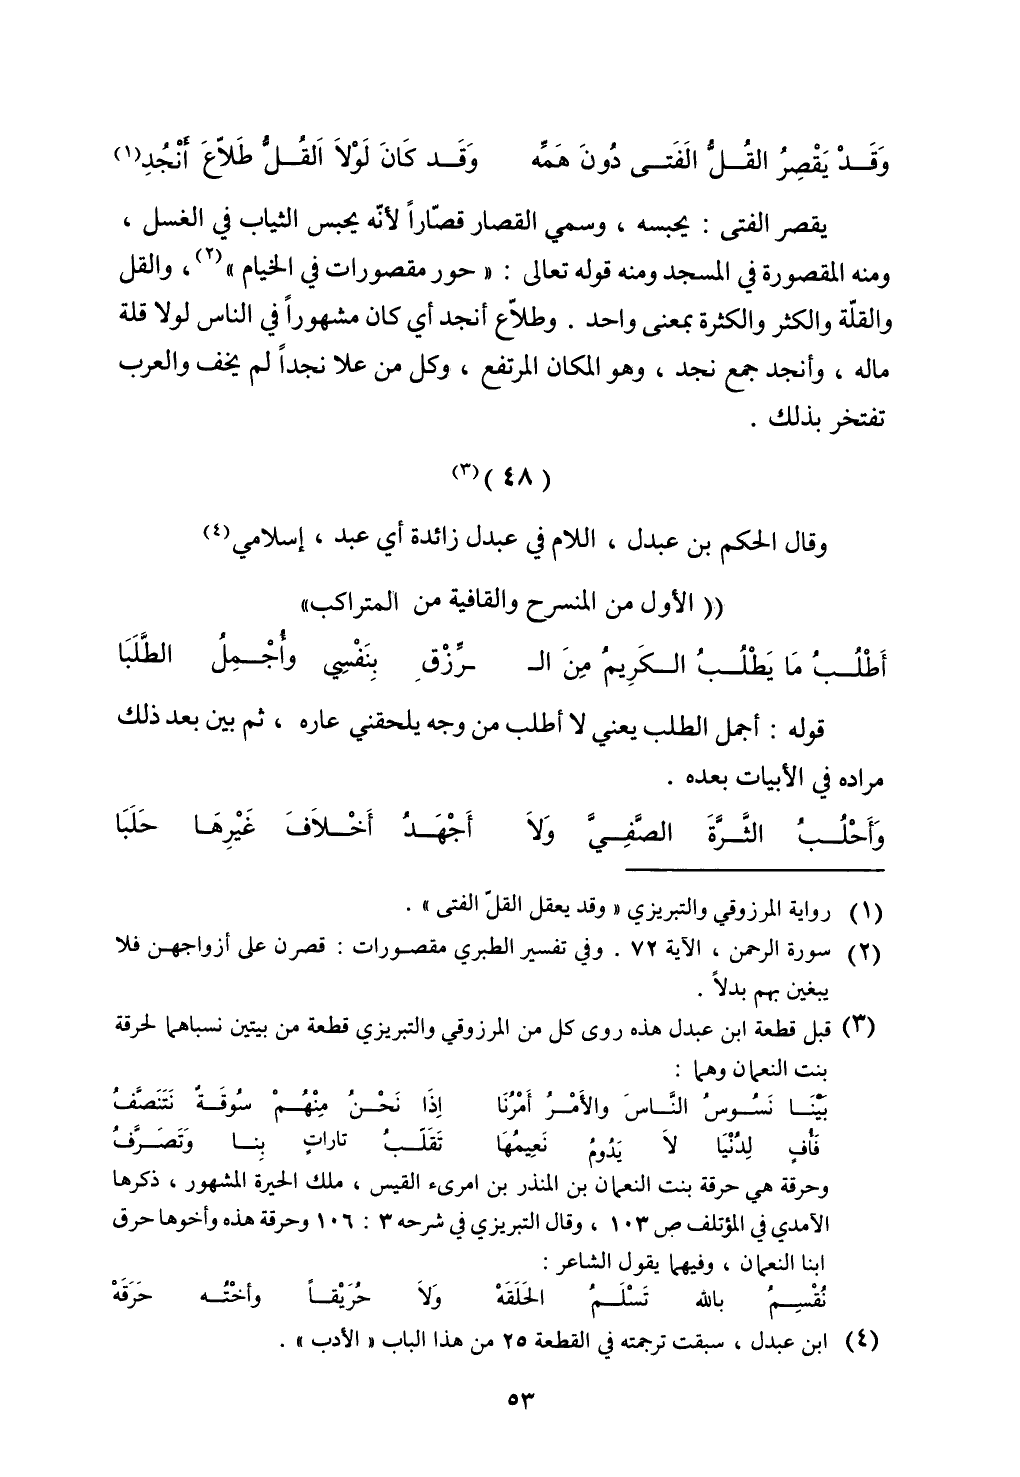 وَقَدْ يَقْصِرُ القُلُّ الفَتَى دُونَ هَمِّه وَقَد كَانَ لَوْلاَ القُلُّ طَلاّعَ أَنْجُدِ(١)
يقصر الفتى : يحبسه ، وسمي القصار قصّاراً لأنّه يحبس الثياب في الغسل ،
ومنه المقصورة في المسجد ومنه قوله تعالى : « حور مقصورات في الخيام »(٢) ، والقل
والقلّة والكثر والكثرة بمعنى واحد . وطلاّع أنجد أي كان مشهوراً في الناس لولا قلة
ماله ، وأنجد جمع نجد ، وهو المكان المرتفع ، وكل من علا نجداً لم يخف والعرب
تفتخر بذلك .
( ٤٨ )(٣)
وقال الحكم بن عبدل ، اللام في عبدل زائدة أي عبد ، إسلامي(٤)
(( الأول من المنسرح والقافية من المتراكب»
أَطْلُبُ مَا يَطْلُبُ الكَرِيمُ مِنَ الـ ـرِّزْقِ بِنَفْسِي وأُجْمِلُ الطَّلَبَا
قوله : أجمل الطلب يعني لا أطلب من وجه يلحقني عاره ، ثم بين بعد ذلك
مراده في الأبيات بعده .
وَأَحْلُبُ الثَّرَّةَ الصَّفِيَّ وَلاَ أَجْهَدُ أَخْلاَفَ غَيْرِهَا حَلَبَا
(١) رواية المرزوقي والتبريزي « وقد يعقل القلّ الفتى » .
(٢) سورة الرحمن ، الآية ٧٢ . وفي تفسير الطبري مقصورات : قصرن على أزواجهن فلا
يبغين بهم بدلاً .
(٣) قبل قطعة ابن عبدل هذه روى كل من المرزوقي والتبريزي قطعة من بيتين نسباهما لحرقة
بنت النعمان وهما :
بَيْنَا نَسُوسُ النَّاسَ والأمْرُ أمْرُنَا إذَا نَحْنُ مِنْهُمْ سُوقَةٌ نَتَنَصَّفُ
فَأُفٍ لِدُنْيَا لاَ يَدُومُ نَعِيمُهَا تَقَلَّبُ تاراتٍ بِنا وَتَصَرَّفُ
وحرقة هي حرقة بنت النعمان بن المنذر بن امرىء القيس ، ملك الحيرة المشهور ، ذكرها
الآمدي في المؤتلف ص ١٠٣ ، وقال التبريزي في شرحه ٣ : ١٠٦ وحرقة هذه وأخوها حرق
ابنا النعمان ، وفيهما يقول الشاعر :
نُقْسِمُ بالله تَسْلَمُ الحَلَقَهْ وَلاَ حُرَيْقاً وأخْتُه حَرَقَهْ
(٤) ابن عبدل ، سبقت ترجمته في القطعة ٢٥ من هذا الباب « الأدب » .
٥٣